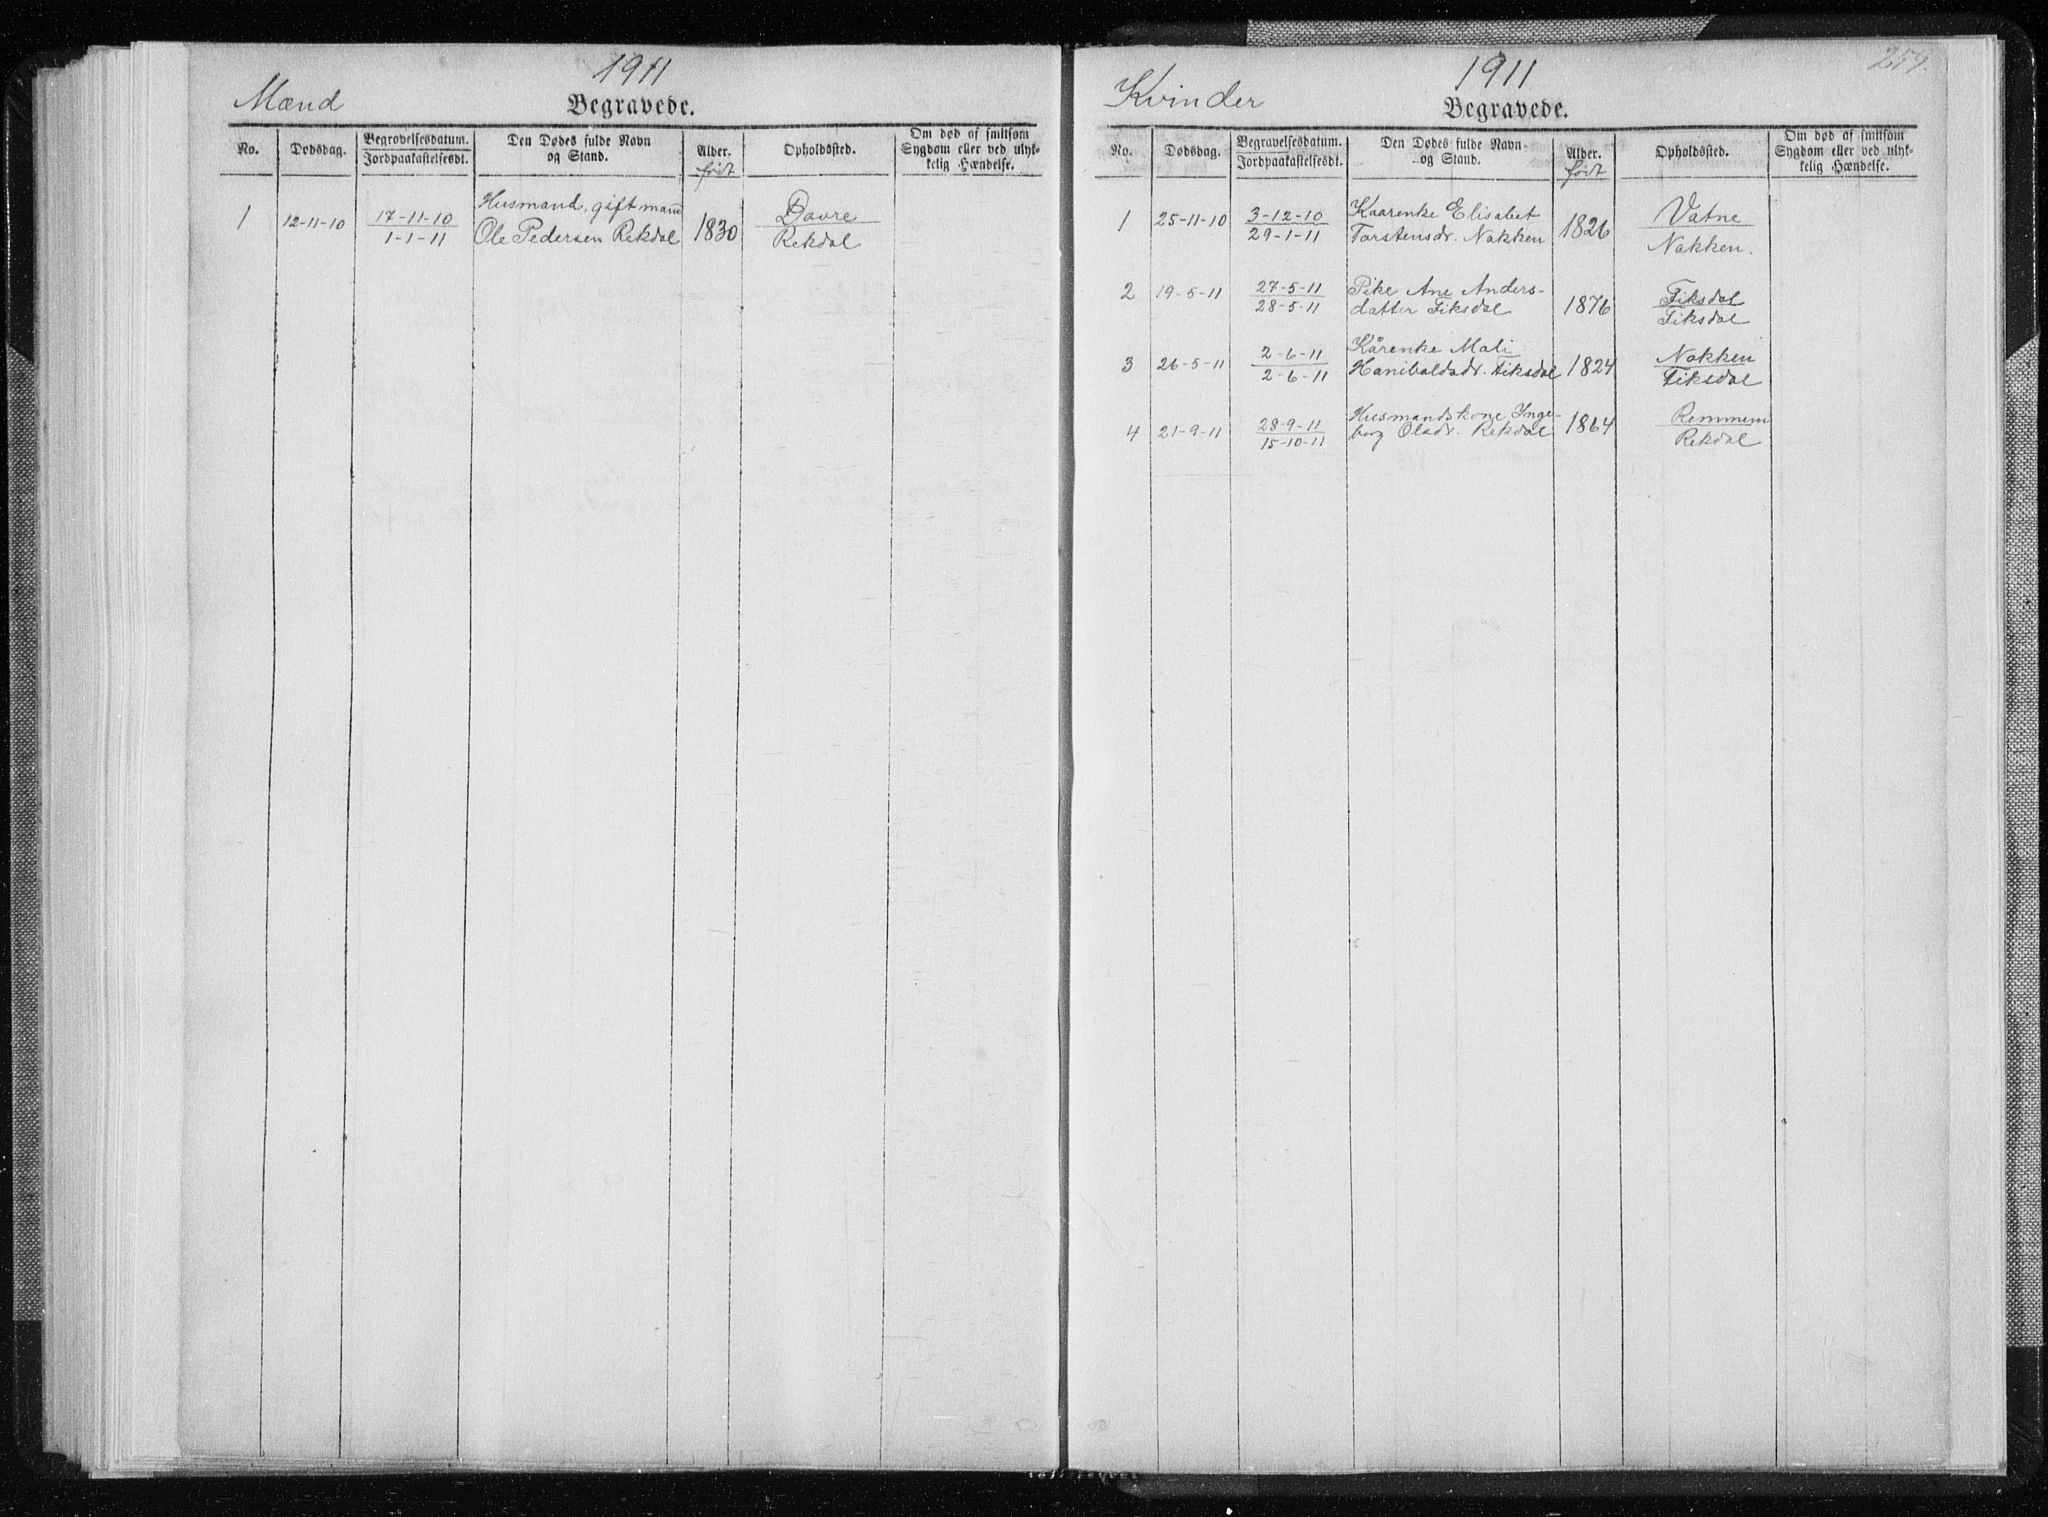 1911
Mænd
Begravede.
No.
Dødsdag.
Begravelsesdatum.
Jordpaakastelsesdt.
Den Dødes fulde Navn
og Stand.
Alder.
født
Opholdssted.
Om død af smitsom
Sygdom eller ved ulyk-
kelig Hændelse.
1
12-11-10
17-11-10
1-1-11
Husmand, gift mand
Ole Pedersen Rekdal
1830
Dovre
Rekdal
1911
Kvinder
Begravede.
No.
Dødsdag.
Begravelsesdatum.
Jordpaakastelsesdt.
Den Dødes fulde Navn
og Stand.
Alder.
født
Opholdssted.
Om død af smitsom
Sygdom eller ved ulyk-
kelig Hændelse.
1
25-11-10
3-12-10
29-1-11
Kaarenke Elisabet
Torstensdr. Nakken
1826
Vatne
Nakken.
2
19-5-11
27-5-11
28-5-11
Pike Ane Anders-
datter Fiksdal
1876
Fiksdal
Fiksdal
3
26-5-11
2-6-11
2-6-11
Kårenke Mali
Hanibalsdr. Fiksdal
1824
Nakken
Fiksdal
4
21-9-11
28-9-11
15-10-11
Husmandskone Inge-
borg Olsdr. Rekdal
1864
Remmem
Rekdal